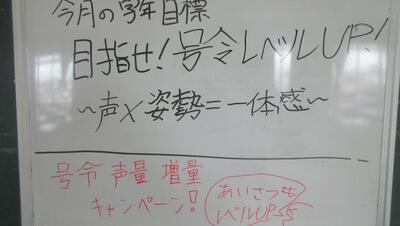 今月の学年目標
目指せ!号令レベルUP!
~声×姿勢=一体感~
号令 声量 増量
キャンペーン!
あいさつも
レベルUP